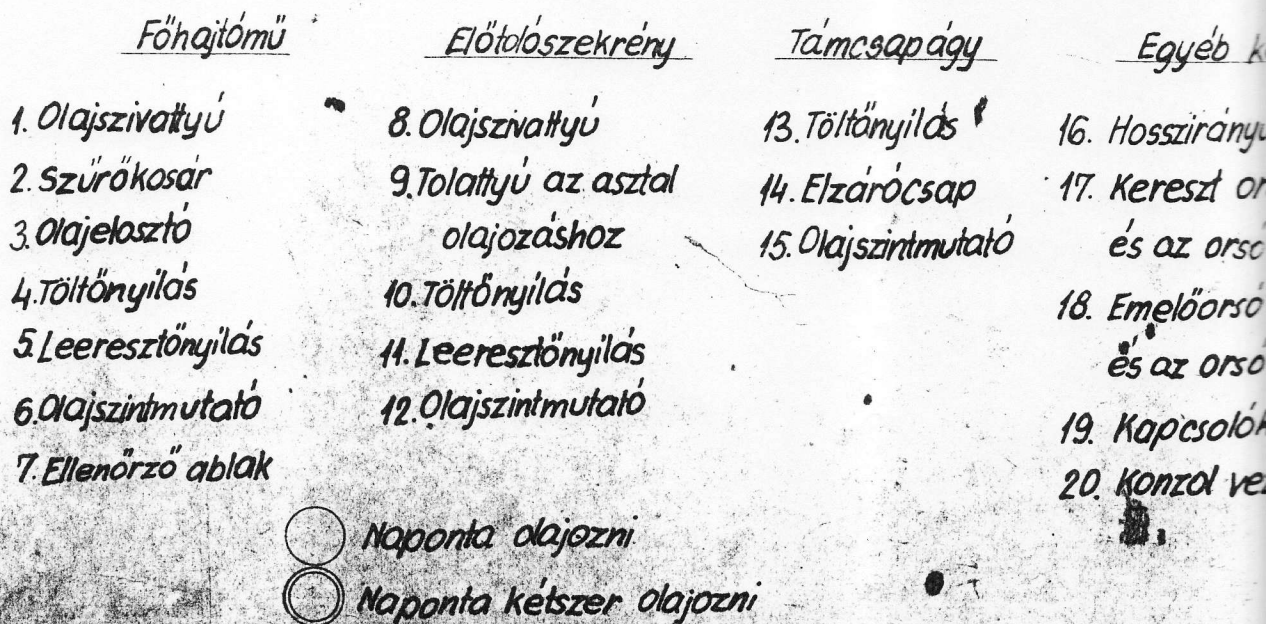 Főhajtómű
1. Olajszivattyú
2. Szűrőkosár
3. Olajelosztó
4. Töltőnyílás
5. Leeresztőnyílás
6. Olajszintmutató
7. Ellenőrző ablak
Előtolószekrény
8. Olajszivattyú
9. Tolattyú az asztal
olajozáshoz
10. Töltőnyílás
11. Leeresztőnyílás
12. Olajszintmutató
Támcsapágy
13. Töltőnyílás
14. Elzárócsap
15. Olajszintmutató
Egyéb
16. Hosszirányú
17. Kereszt
és az orsó
18. Emelőorsó
és az orsó
19. Kapcsolók
20. Konzol
Naponta olajozni
Naponta kétszer olajozni